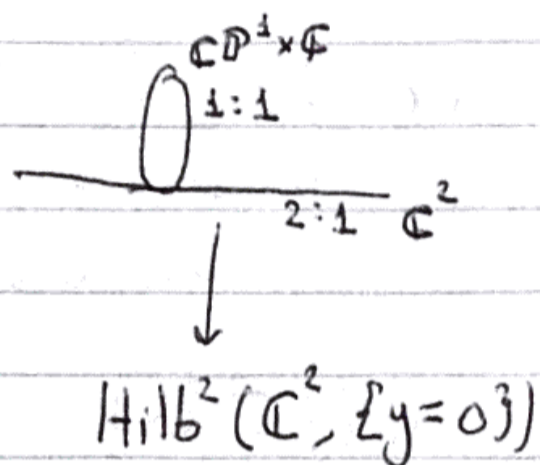 ℂP¹×ℂ
1:1
2:1 ℂ²
Hilb²(ℂ², {y=0})